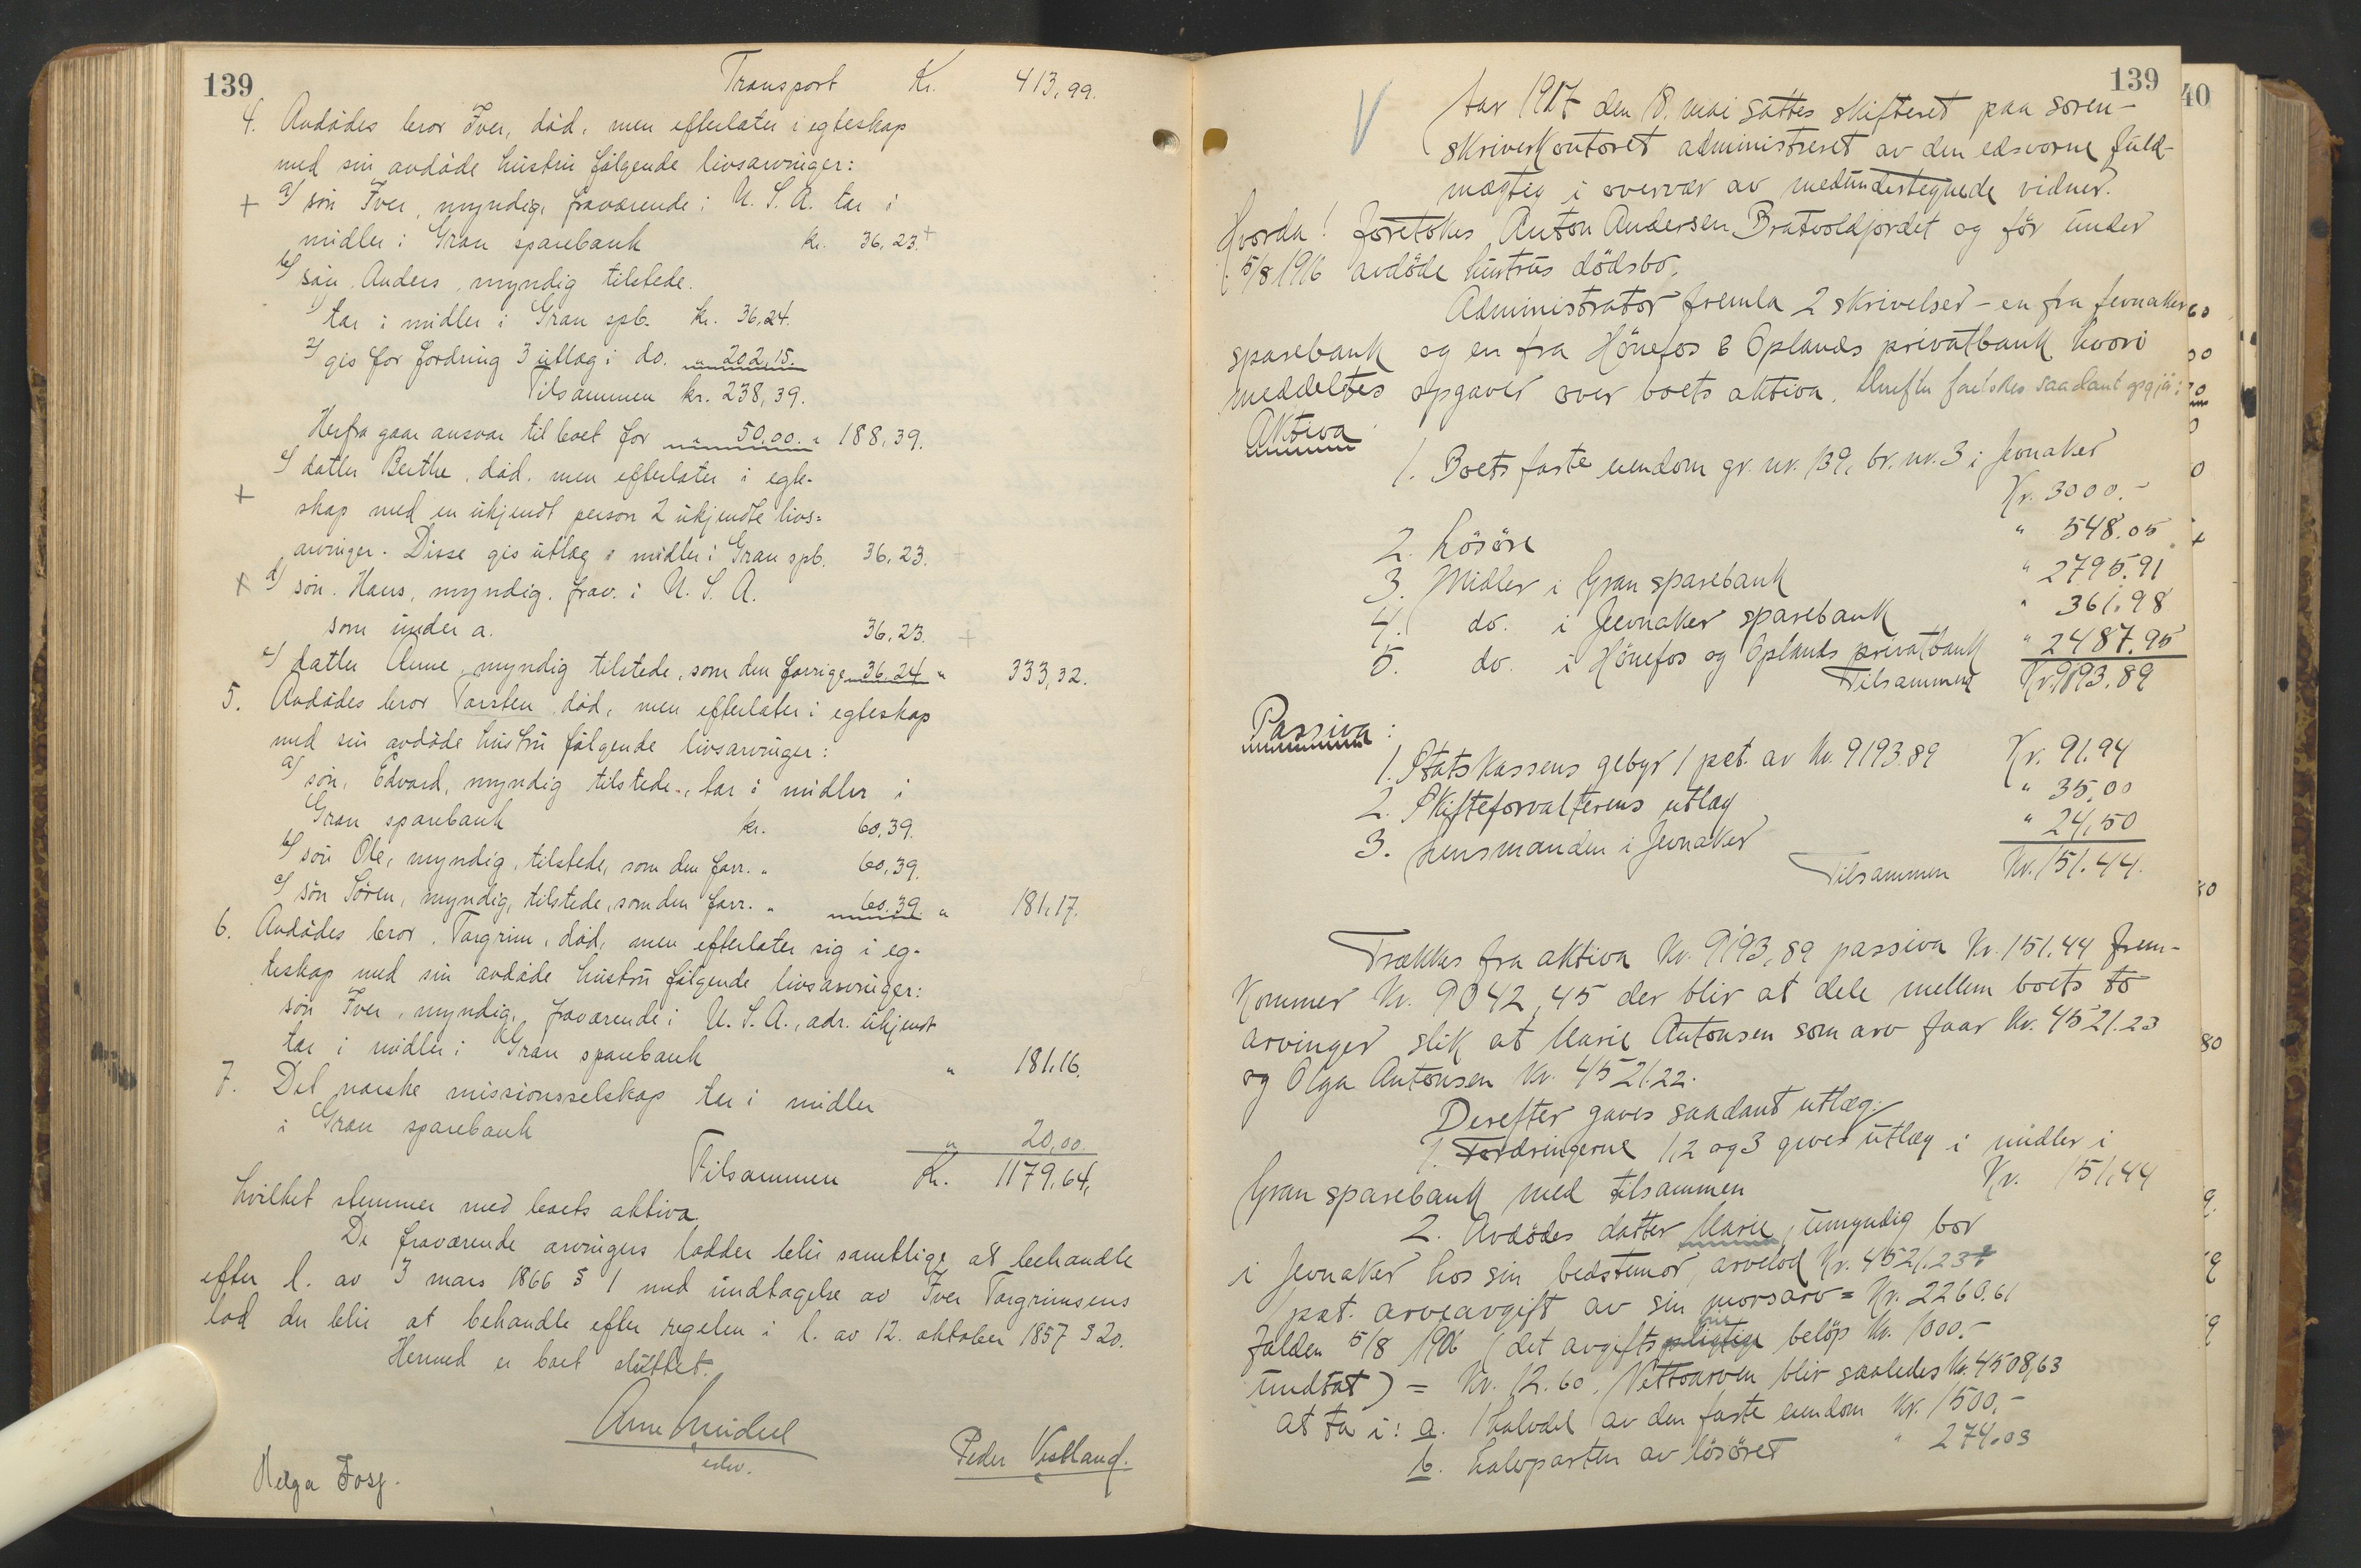 139
Transport Kr. 413,99.
4. Avdödes bror Iver, död, men efterlater i egteskap
med sin avdöde hustru følgende livsarvinger:
+ a) søn Iver, myndig, fraværende i U. S. A. tar i
midler i Gran sparebank kr. 36,23. +
b) søn Anders, myndig tilstede.
1) tar i midler i Gran spb. kr. 36,24.
2) ges for fordring 3 utlæg i do. " 202,15.
Tilsammen kr. 238,39.
Herfra gaar ansvar til boet for " 50,00. " 188,39.
c) datter Berthe, död, men efterlater i egte-
+ skap med en ukjendt person 2 ukjendte livs=
arvinger. Disse gis utlæg i midler i Gran spb. 36,23. +
+ d) søn Hans, myndig, frav. i U. S. A.
som under a. 36,23. +
e) datter Anne, myndig tilstede, som den forrige 36,24 " 333,32.
5. Avdödes bror Torsten död, men efterlater i egteskap
med sin avdöde hustru følgende livsarvinger:
a) søn, Edvard, myndig tilstede, tar i midler i
Gran sparebank kr. 60,39.
b) søn Ole, myndig, tilstede, som den forr. " 60,39.
c) søn Søren, myndig, tilstede, som den forr. " 60.39. " 181,17.
6. Avdödes bror Torgrim, död, men efterlater sig i eg-
teskap med sin avdöde hustru følgende livsarvinger:
søn Iver, myndig, fraværende i U. S. A., adr. ukjent
tar i midler i Gran sparebank " 181,16.
7. Det norske missionsselskap tar i midler
i Gran sparebank " 20,00.
Tilsammen Kr. 1179,64,
hvilket stemmer med boets aktiva.
De fraværende arvingers lodder blir samtlige at behandle
efter l. av 3 mars 1866 § 1 med undtagelse av Iver Torgrimsens
lod der blir at behandle efter regelen i l. av 12. oktober 1857 § 20.
Hermed er boet sluttet.
edsv.
Peder Vestland.
Helga Fosz.
139
40
V Aar 1917 den 18. mai sattes skifteret paa soren-
skriverkontoret administreret av den edsvorne fuld-
mægtig i overvær av medundertegnede vidner.
Hvorda! Foretokes Anton Andersen Bratvoldjordet og før under
5/8 1916 avdöde hustrus dödsbo.
Administrator fremla 2 skrivelser - en fra Jevnaker
sparebank og en fra Hönefos & Oplands privatbank hvori
meddeltes opgaver over boets aktiva. Derefter foretokes saadant opgjör:
Aktiva
1. Boets faste eiendom gr. nr. 139, br. nr. 3 i Jevnaker
Kr. 3000.-
2. Lösöre " 548.05
3. Midler i Gran sparebank " 2795.91
4. do. i Jevnaker sparebank " 361.98
5. do. i Hönefos og Oplands privatbank " 2487.95
Tilsammen Kr. 9193.89
Passiva:
1. Statskassens gebyr 1 pct. av Kr. 9193.89 Kr. 91.94
2. Skifteforvalterens utlæg " 35,00
3. Lensmanden i Jevnaker " 24,50
Tilsammen Kr. 151.44.
Trækkes fra aktiva Kr. 9193,89 passiva Kr. 151.44 frem-
kommer Kr. 9042,45 der blir at dele mellem boets to
arvinger slik at Marie Antonsen som arv faar Kr. 4521.23
og Olga Antonsen Kr. 4521.22.
Derefter gaves saadant utlæg:
1. Fordringerne 1,2 og 3 gives utlæg i midler i
Gran sparebank med tilsammen Kr. 151,44
2. Avdödes datter Marie, umyndig bor
i Jevnaker hos sin bedstemor, arvelod Kr. 4521.23
1 pct. arveavgift av sin morsarv = Kr. 2260.61
falden 5/8 1916 (det avgiftspligtige fri belöp Kr. 1000.-
undtat) = Kr. 12.60. Nettoarven blir saaledes Kr. 4508,63
at ta i: a. 1 halvdel av den faste eiendom Kr. 1500,-
b. halvparten av lösöret " 274.03